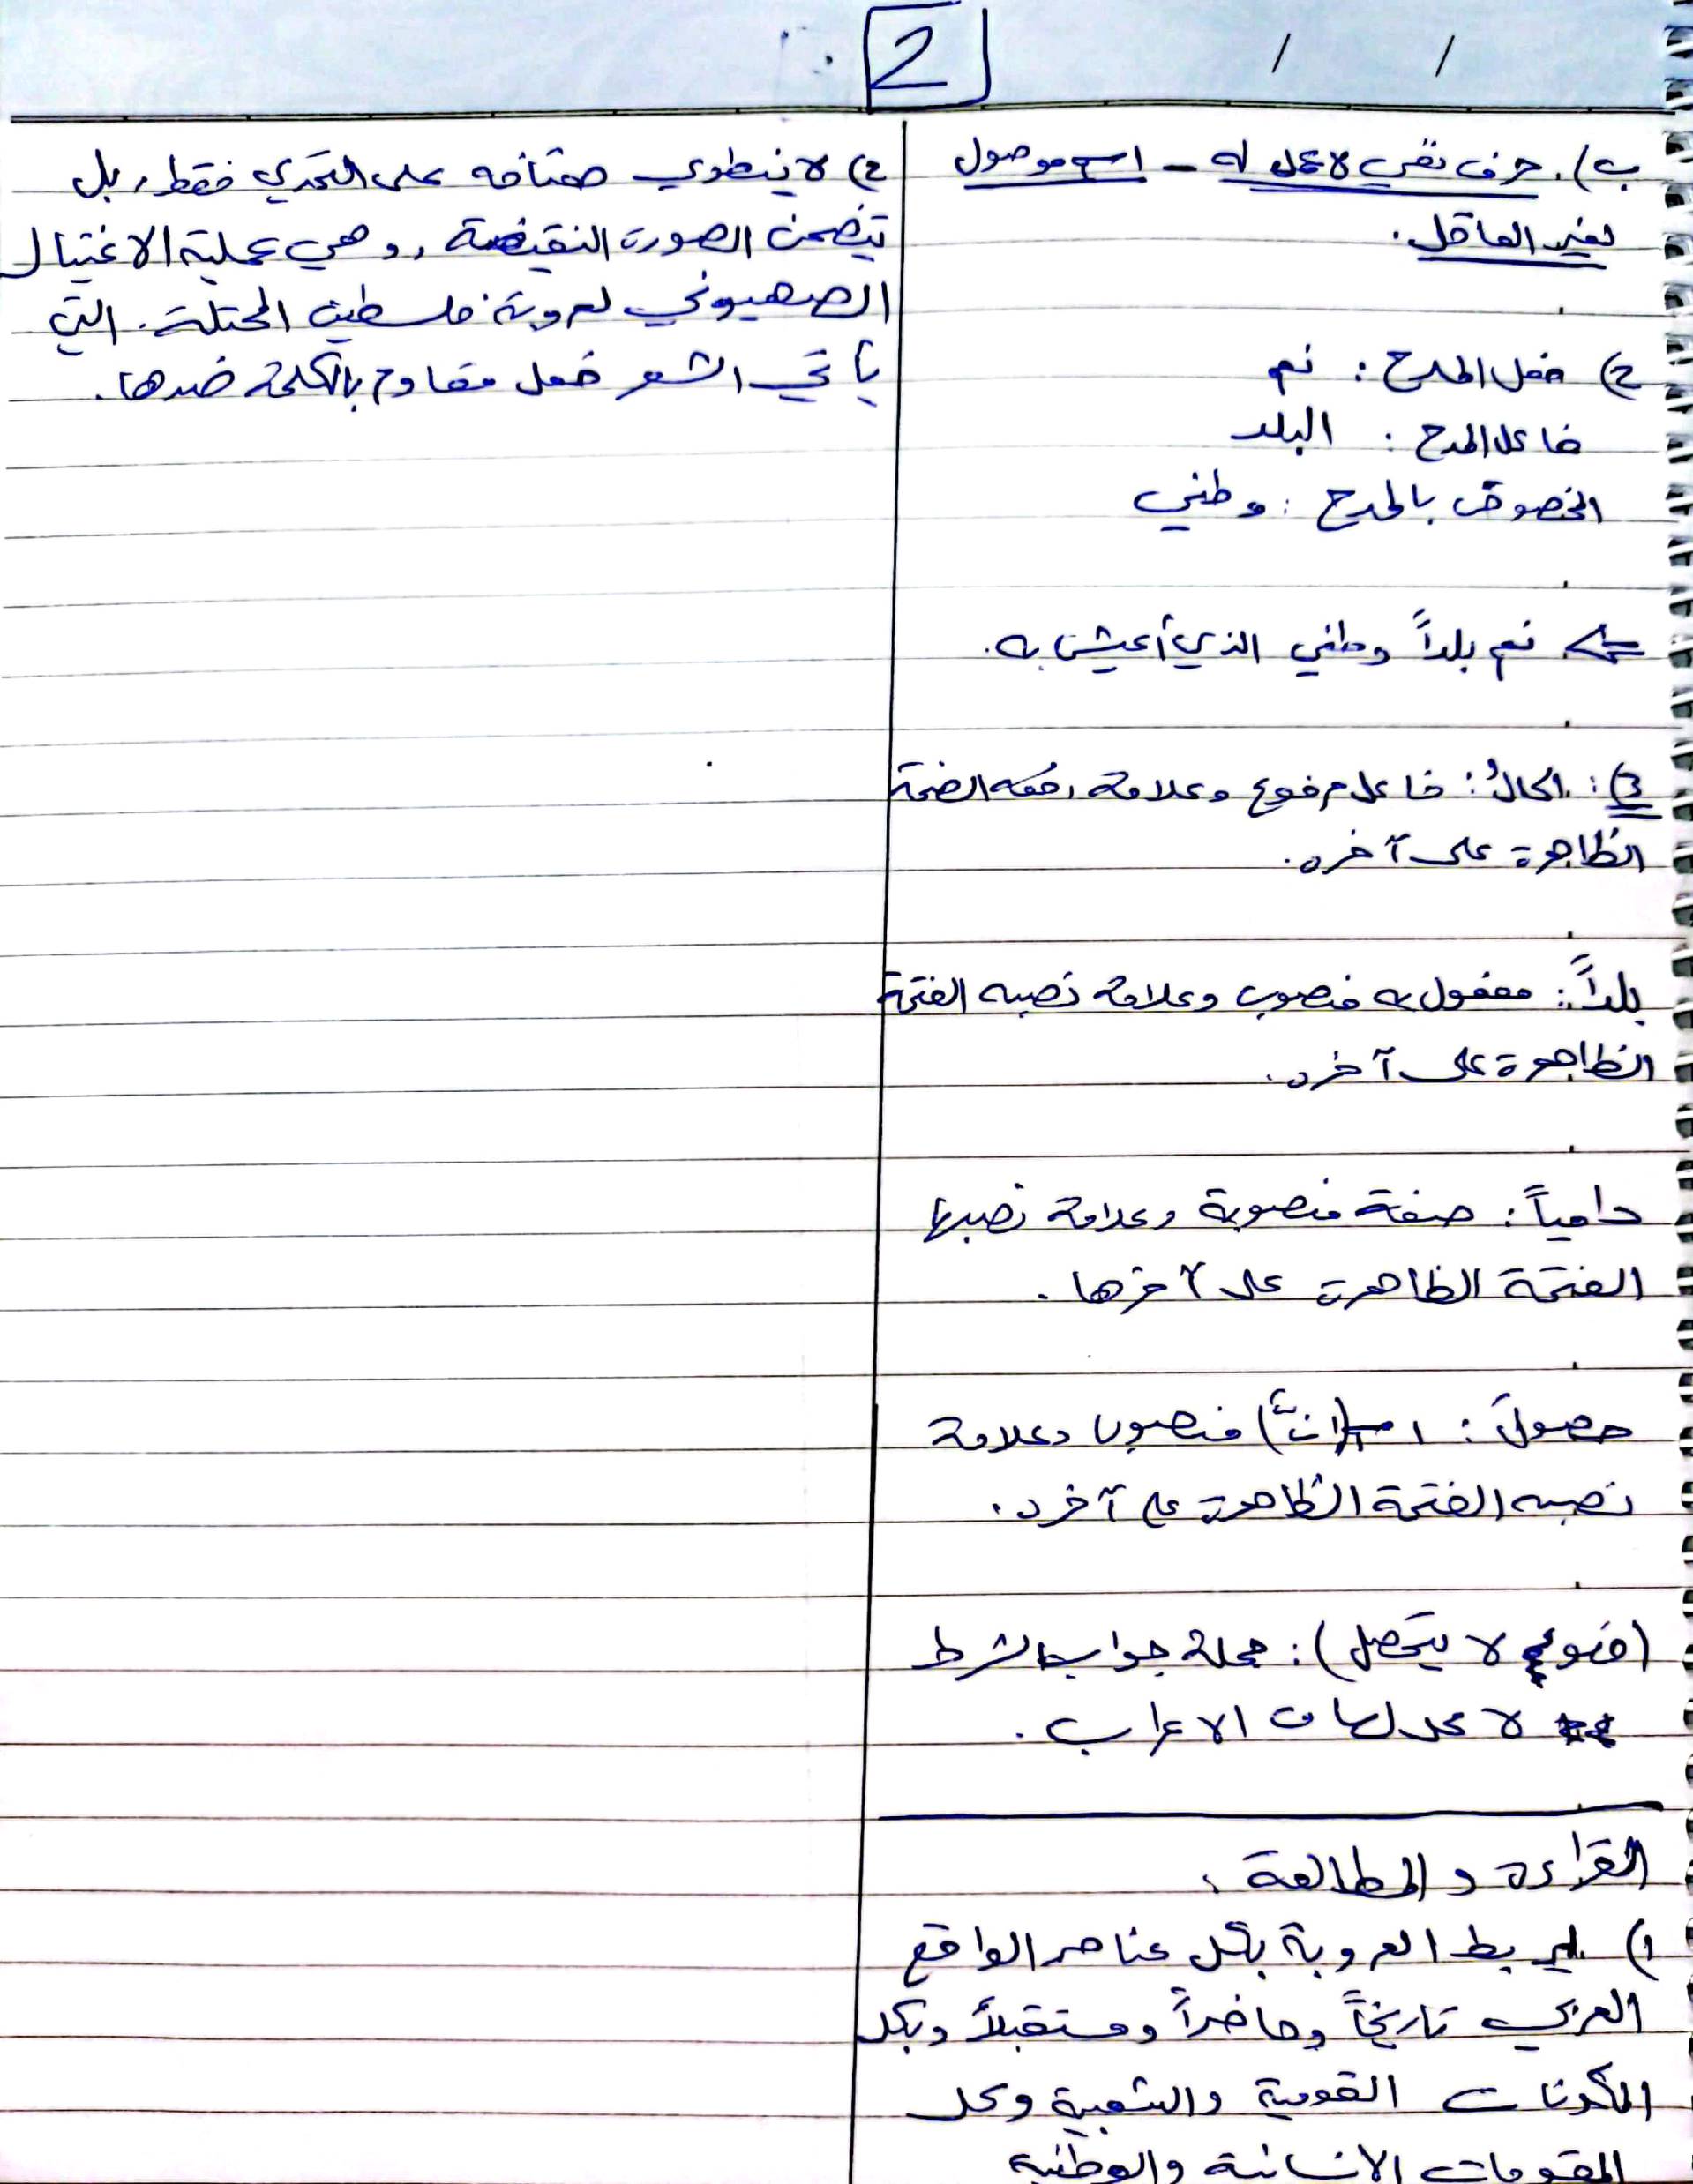 2
/ /
ب). حرف نفي لا عمل له - اسم موصول
لغير العاقل.
2) فعل المدح : نعم
فاعل المدح : البلد
المخصوص بالمدح : وطني
نعم بلداً وطني الذي أعيش به.
3): الحالُ: فاعل مرفوع وعلامة رفعه الضمة
الظاهرة على آخره.
بلداً: مفعول به منصوب وعلامة نصبه الفتحة
الظاهرة على آخره.
دامياً: صفة منصوبة وعلامة نصبها
الفتحة الظاهرة على آخرها.
حصولَ: اسم (انّ) منصوب وعلامة
نصبه الفتحة الظاهرة على آخره.
( لا يتحصل): جملة جواب الشرط
لا محل لها من الاعراب.
القراءة والمطالعة.
1) ليربط العروبة بكل عناصر الواقع
العربي تاريخاً وحاضراً ومستقبلاً وبكل
المكونات القومية والشعبية وكل
المقومات الانسانية والوطنية
2) لا ينطوي هتافه على التحدي فقط، بل
يتضمن الصورة النقيضة، وهي عملية الاغتيال
الصهيوني لعروبة فلسطين المحتلة. التي
يأتي الشعر فعل مقاوم بالكلمة ضدها.